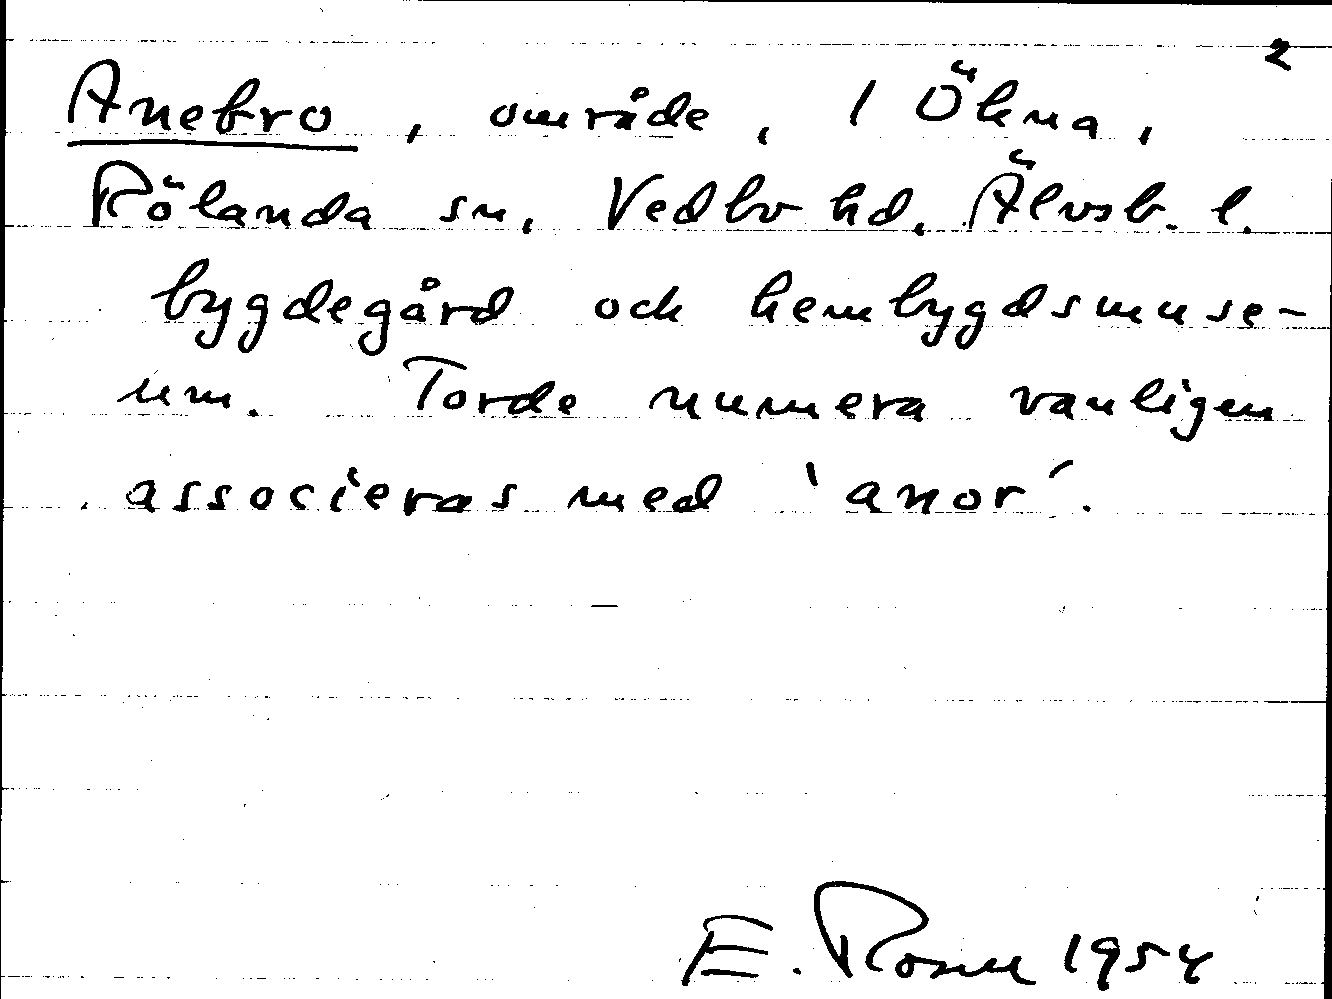 2
Anebro, område, 1 Ökna,
Rölanda sn, Vedbo hd, Älvsb. l.
bygdegård och hembygdsmuse-
um. Torde numera vanligen
associeras med 'anor'.
E. Rosen 1954